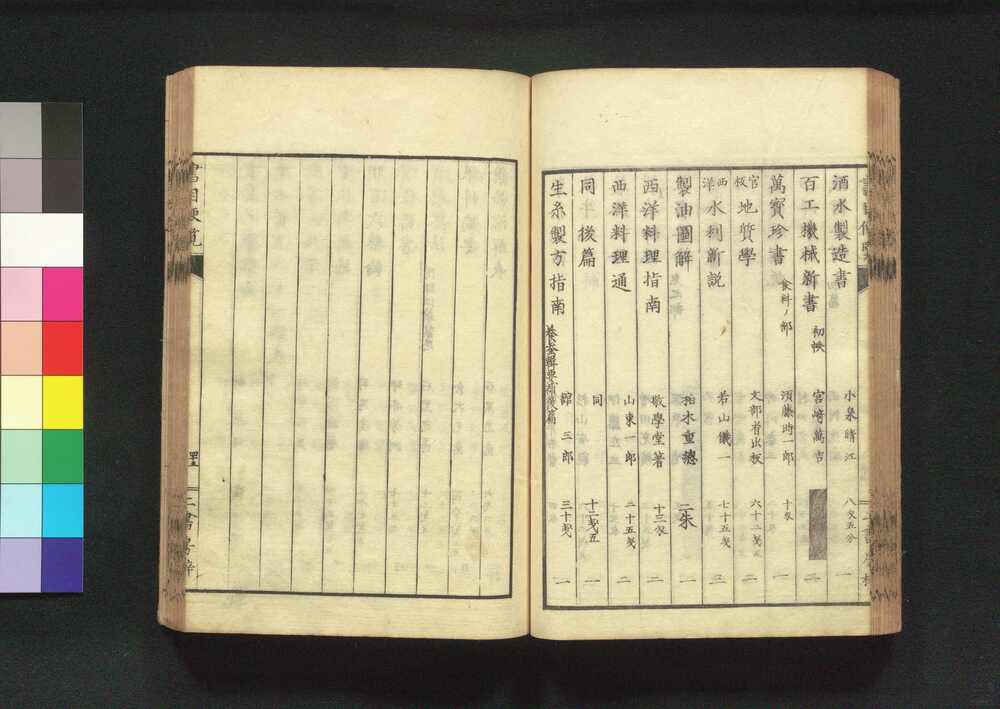 酒水製造書 小泉晴江 八匁五分 一
百工機械新書 初帙 宮﨑萬吉 二
萬寳珍書 食料ノ部 須藤時一郎 十匁 一
官板 地質學 文部省出板 六十二戔五 二
西洋 水利新説 若山儀一 七十五戔 二
製油圖解 柏木重總 二朱 一
西洋料理指南 敬學堂著 十三匁 二
西洋料理通 二十五戔 二
同 後篇 同 十二戔五 一
生糸製方指南 養蚕輯要補後篇 舘三郎 三十戔 一
書目便覧
三書房梓